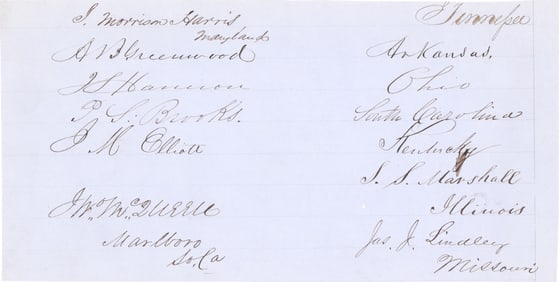 J. Morrison Harris
Maryland
Tennessee
A B Greenwood
Arkansas.
J S Harrison
Ohio
P. S. Brooks.
South Carolina
J M Elliott
Kentucky
S. S. Marshall
Illinois
Jno. McQueen
Marlboro
So. Ca
Jas. J. Lindley
Missouri